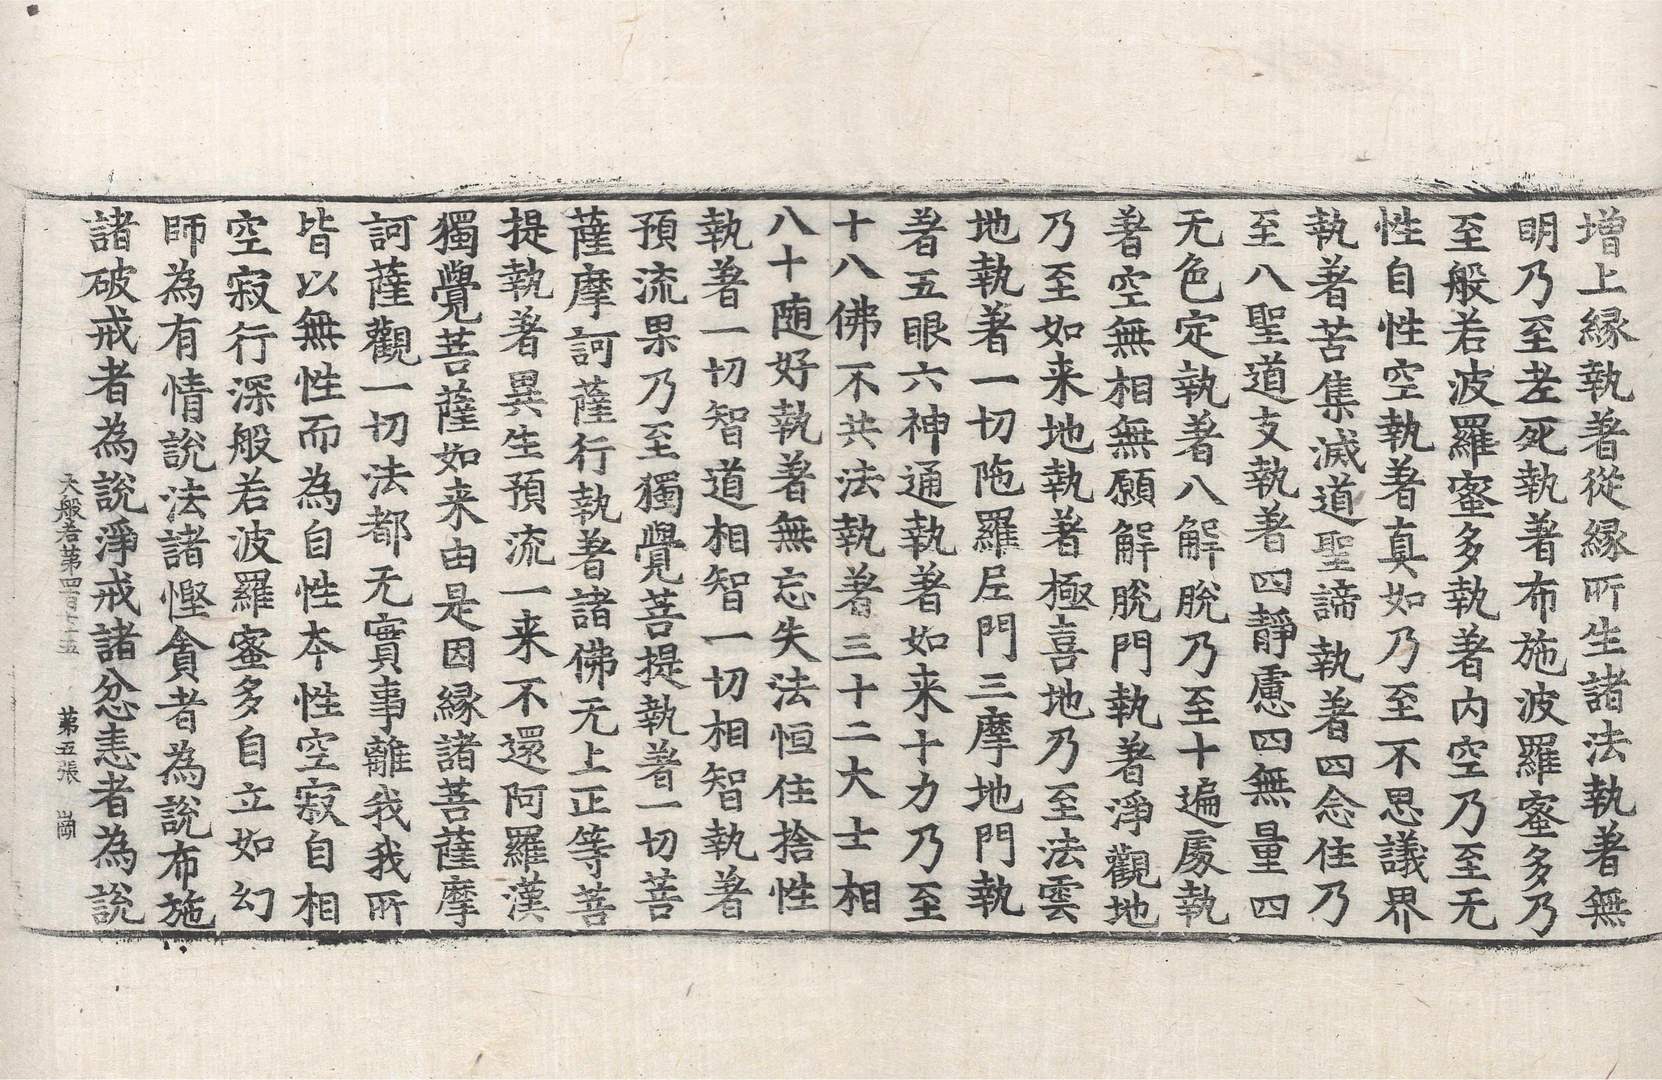 增上縁執著從縁所生諸法執著無
明乃至老死執著布施波羅蜜多乃
至般若波羅蜜多執著内空乃至无
性自性空執著真如乃至不思議界
執著苦集滅道聖諦執著四念住乃
至八聖道支執著四靜慮四無量四
无色定執著八解脫乃至十遍處執
著空無相無願解脫門執著淨觀地
乃至如来地執著極喜地乃至法雲
地執著一切陁羅尼門三摩地門執
著五眼六神通執著如来十力乃至
十八佛不共法執著三十二大士相
八十随好執著無忘失法恒住捨性
執著一切智道相智一切相智執著
預流果乃至獨覺菩提執著一切菩
薩摩訶薩行執著諸佛无上正等菩
提執著異生預流一来不還阿羅漢
獨覺菩薩如来由是因縁諸菩薩摩
訶薩觀一切法都无實事離我我所
皆以無性而為自性夲性空寂自相
空寂行深般若波羅蜜多自立如幻
師為有情說法諸慳貪者為說布施
諸破戒者為說淨戒諸忿恚者為說
大般若第四百七十五 第五張 崗